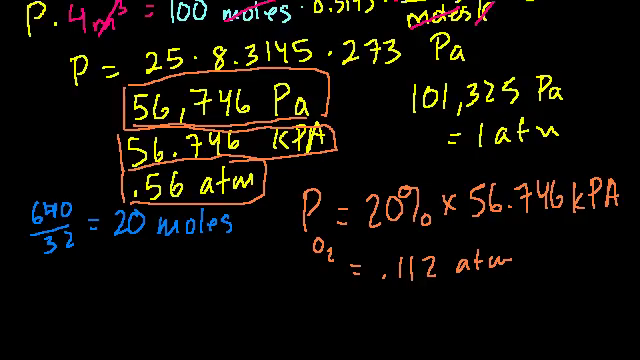 P. 4m³ = 100 moles . 8.3145 .
moles k
P = 25 . 8.3145 . 273 Pa
56,746 Pa
56.746 KPA
.56 atm
101,325 Pa
= 1 atm
640/32 = 20 moles
P O2 = 20% x 56.746 kPA
= .112 atm